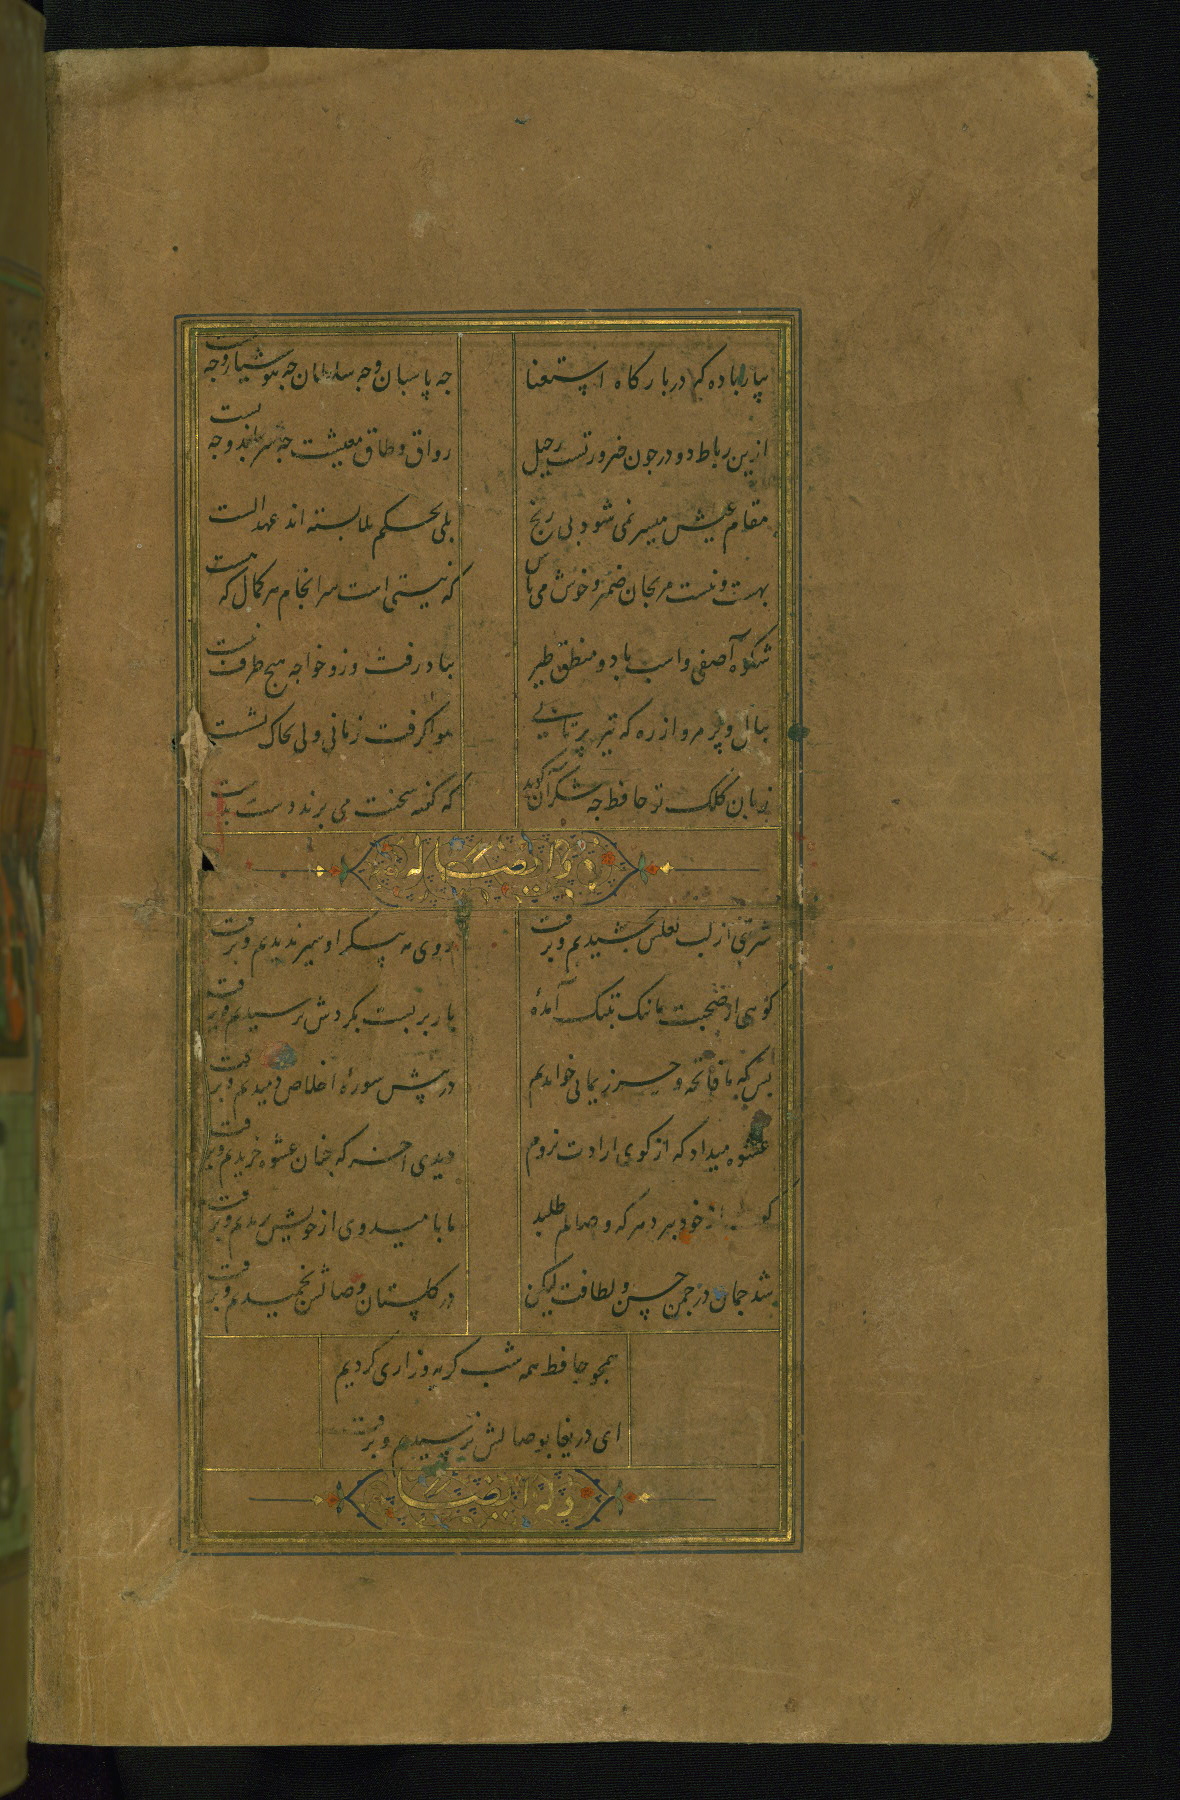 بیار باده که در بارگاه استغنا
چه پاسبان و چه سلطان چه هوشیار و چه مست
ازین رباط دو در چون ضرورتست رحیل
رواق و طاق معیشت چه سربلند و چه پست
مقام عیش میسر نمی شود بی رنج
بلی بحکم بلا بسته اند عهد الست
بهست و نیست مرنجان ضمیر و خوش می باش
که نیستی است سرانجام هر کمال که هست
شکوه آصفی و اسب باد و منطق طیر
بباد رفت و زو خواجه هیچ طرف نبست
ببال و پر مرو از ره که تیر پرتابی
هوا گرفت زمانی ولی بخاک نشست
زبان کلک تو حافظ چه شکر آن گوید
که گفته سخنت می برند دست بدست
وله ایضا
شربتی از لب لعلش نچشیدیم و برفت
روی مه پیکر او سیر ندیدیم و برفت
گوئی از صحبت ما نیک بتنک آمده
بار بربست بگردش نرسیدیم و برفت
بس که ما فاتحه و حرز یمانی خواندیم
در پیش سورۀ اخلاص دمیدیم و برفت
عشوه میداد که از کوی ارادت نروم
دیدی آخر که چنان عشوه خریدیم و برفت
گفت از خود ببرد هر که وصالم طلبد
ما بامیدوی از خویش بریدیم و برفت
شد چمان در چمن حسن و لطافت لیکن
در گلستان وصالش نچمیدیم و برفت
همچو حافظ همه شب گریه و زاری کردیم
ای دریغا بوصالش نرسیدیم و برفت
وله ایضا